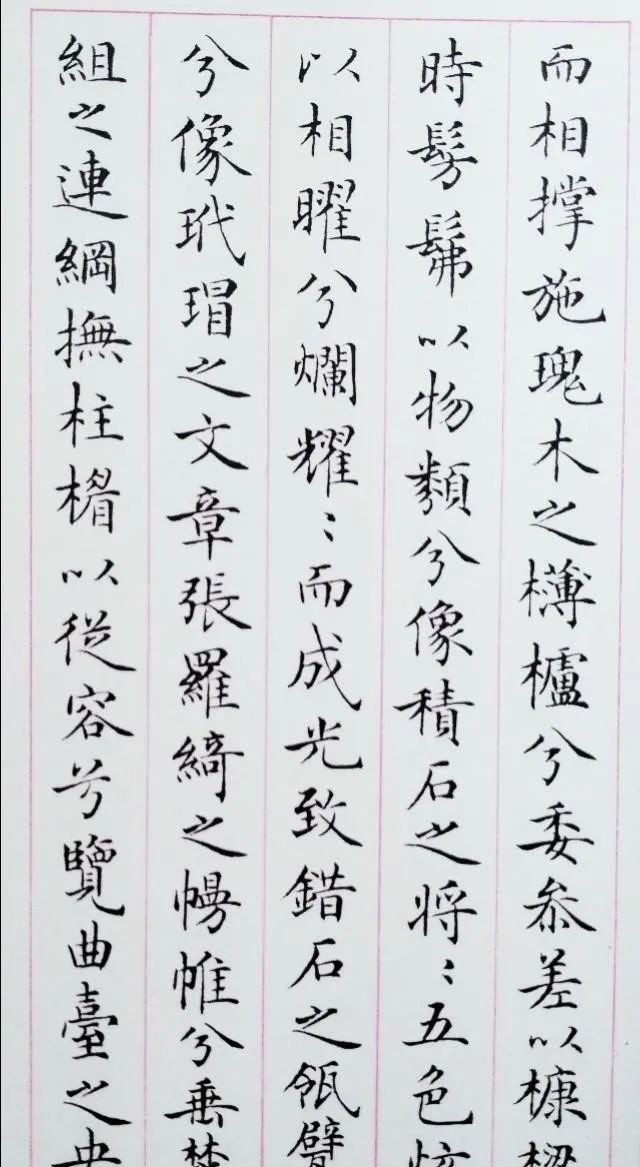 而相撑施瑰木之欂櫨兮委参差以槺
時髣髴以物類兮像積石之将：五色
以相曜兮爛耀：而成光致錯石之瓴甓
兮像玳瑁之文章張羅綺之幔帷兮垂楚
組之連綱撫柱楣以從容兮覽曲臺之央